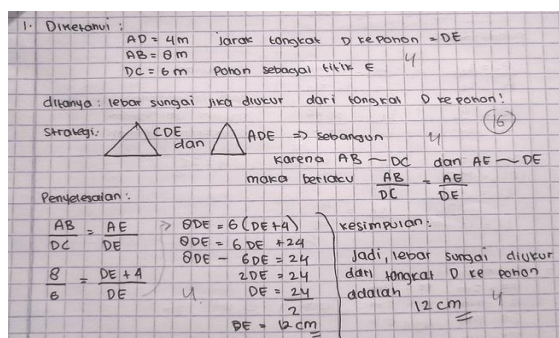 1. Diketahui :
AD = 4m jarak tongkat D ke pohon = DE
AB = 8m
DC = 6m Pohon sebagai titik E 4
ditanya : lebar sungai jika diukur dari tongkat D ke pohon!
16
Strategi: CDE dan ADE => sebangun 4
karena AB ~ DC dan AE ~ DE
maka berlaku AB/DC = AE/DE
Penyelesaian :
AB/DC = AE/DE
8/6 = DE + 4/DE
4
8DE = 6(DE+4)
8DE = 6DE + 24
8DE - 6DE = 24
2DE = 24
DE = 24/2
DE = 12 cm
kesimpulan:
Jadi, lebar sungai diukur
dari tongkat D ke pohon
adalah 4
12 cm